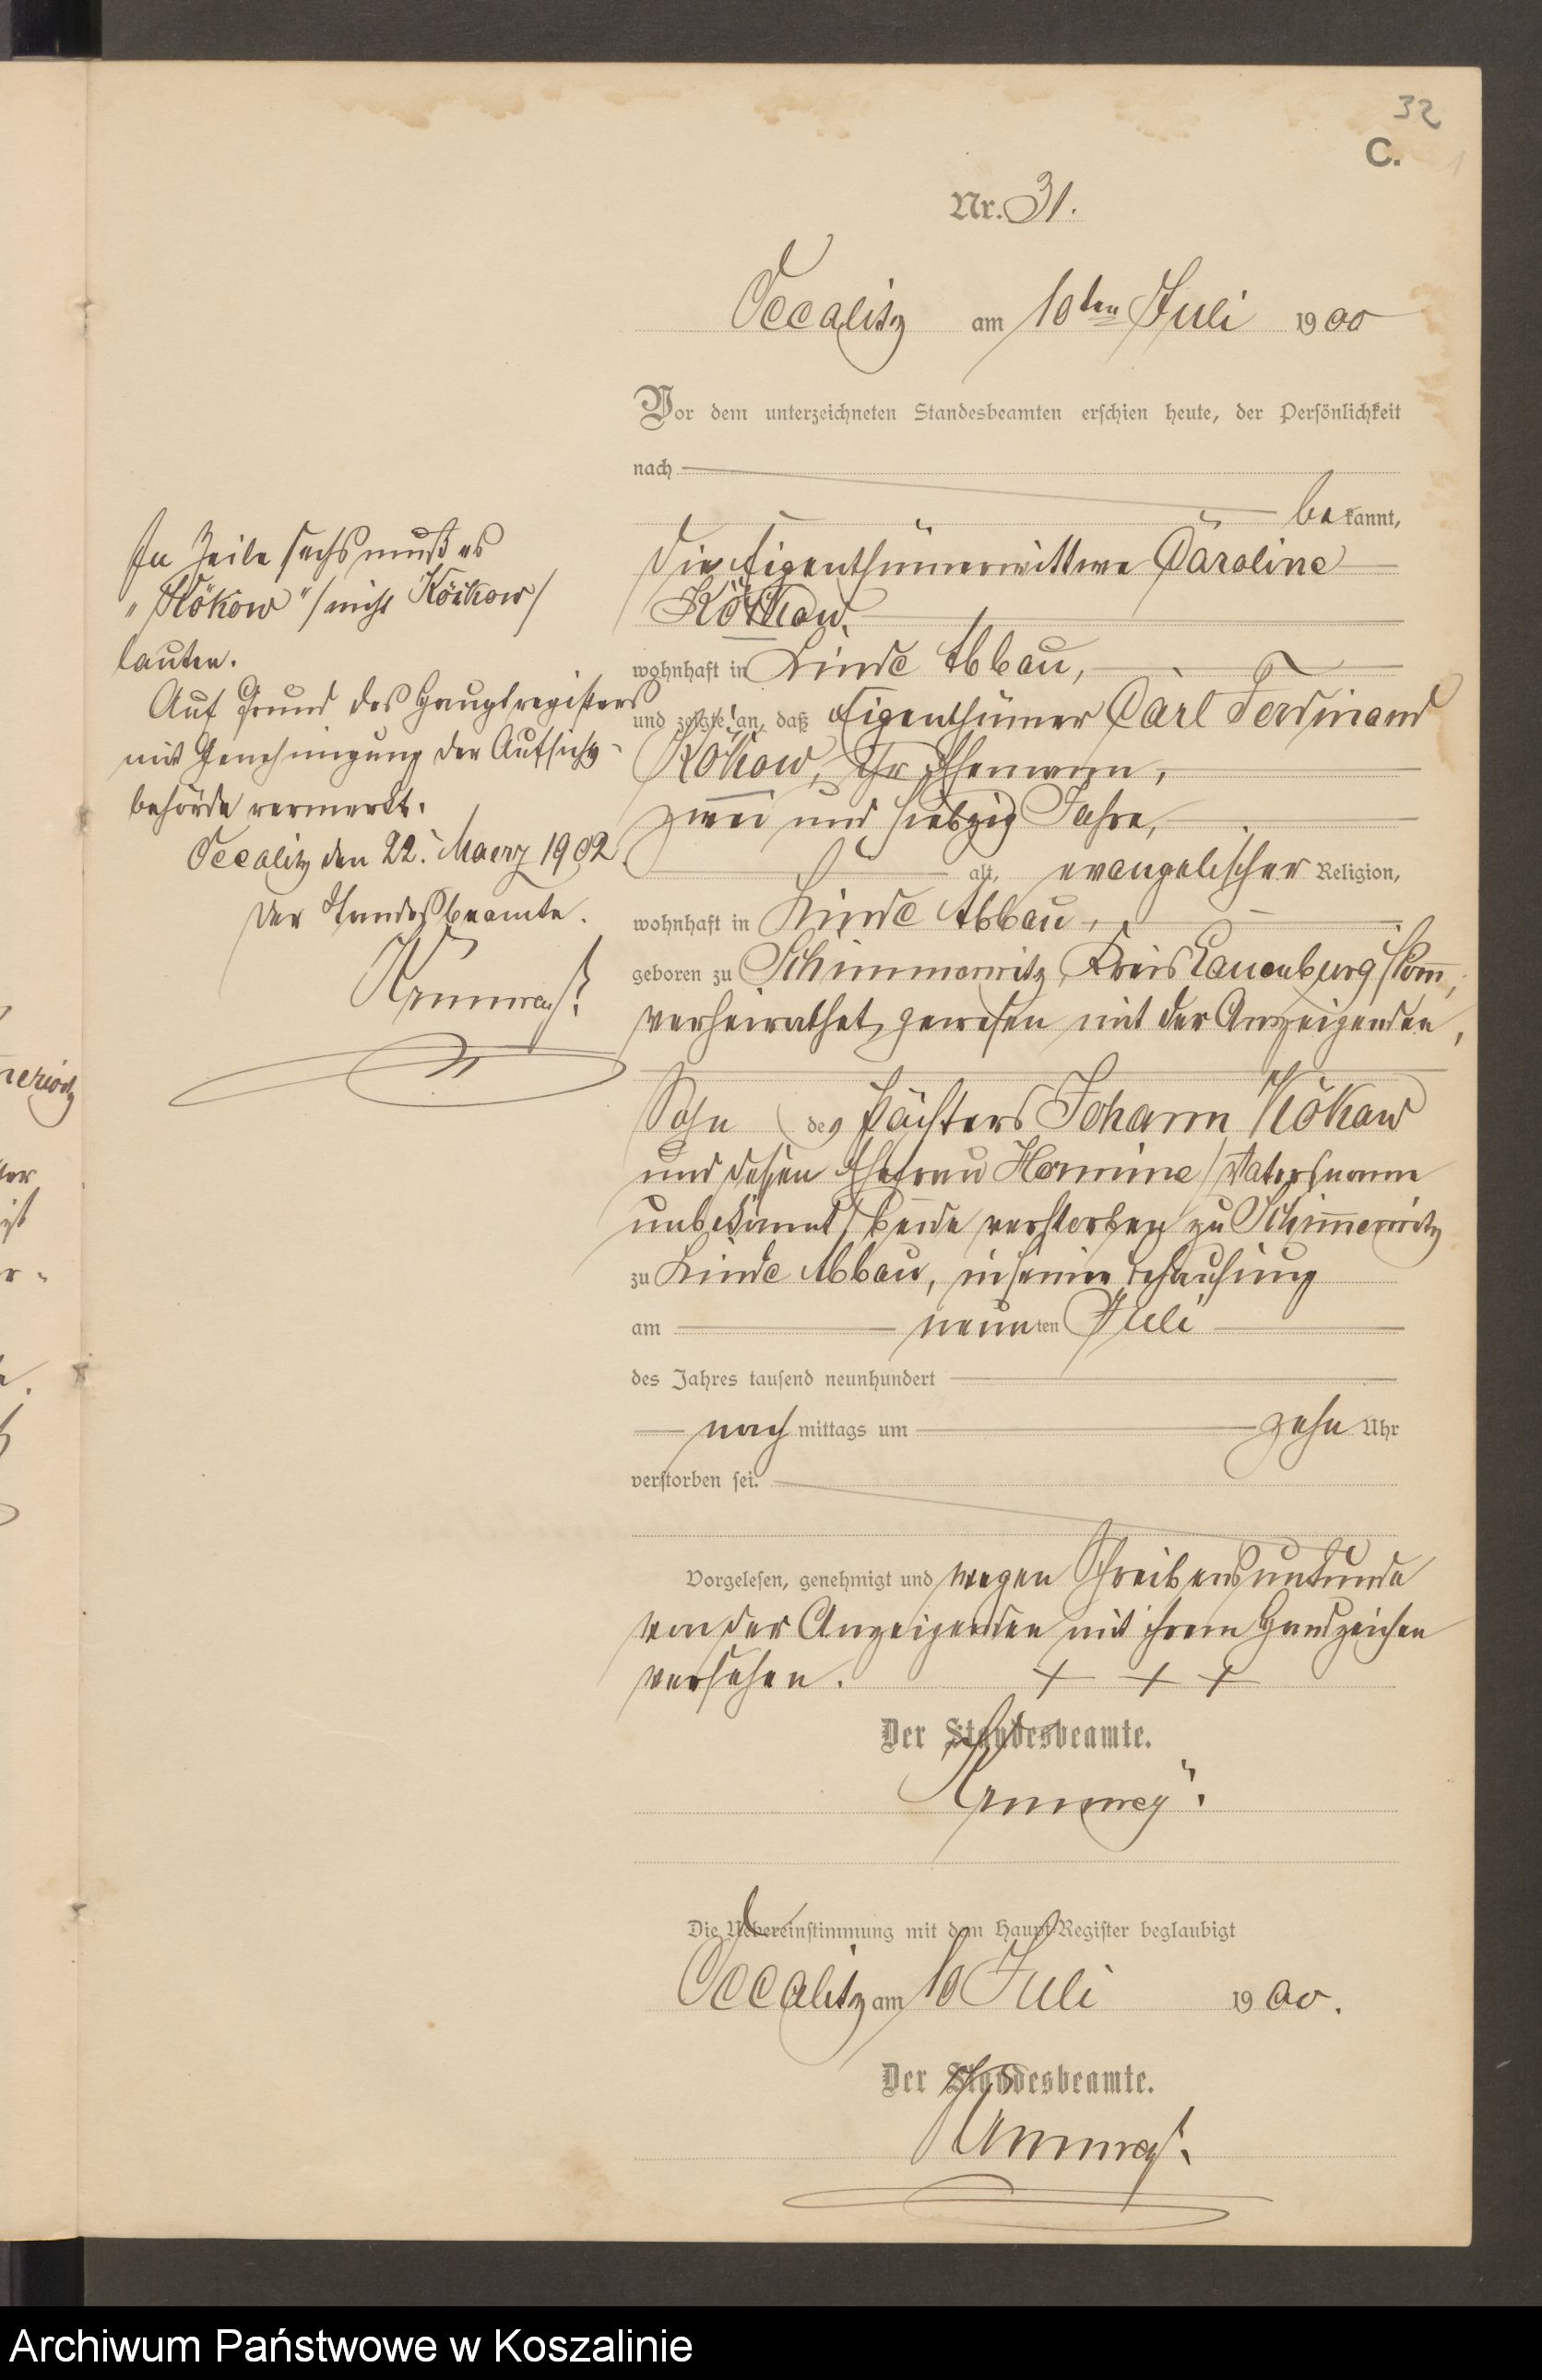 32
C.
Nr. 31.
Occalitz am 10ten Juli 1900
Vor dem unterzeichneten Standesbeamten erschien heute, der Persönlichkeit
nach
bekannt,
die Eigenthümerwittwe Caroline
wohnhaft in Linde Abbau,
und zeigte an, daß Eigenthümer Carl Ferdinand
Kökow, ihr Ehemann,
zwei und siebzig Jahre,
alt, evangelischer Religion,
wohnhaft in Linde Abbau,
geboren zu Schimmerwitz, Kreis Lauenburg/Pom,
verheirathet gewesen mit der Anzeigenden,
Sohn des Pächters Johann Kökow
und dessen Ehefrau Hermine / Vatersname
unbekannt / beide verstorben zu Schimmerwitz
zu Linde Abbau, in seiner Behausung
am neunten Juli
des Jahres tausend neunhundert
nachmittags um zehn Uhr
verstorben sei.
Vorgelesen, genehmigt und wegen Schreibensunkunde
von der Anzeigenden mit ihrem Handzeichen
versehen. + + +
Der Standesbeamte.
Die Uebereinstimmung mit dem Haupt-Register beglaubigt
Occalitz am 10 Juli 1900.
Der Standesbeamte.
In Zeile sechs muß es
"Kökow" / nicht
lauten.
Auf Grund des Hauptregisters
mit Genehmigung der Aufsichts-
behörde vermerkt.
Occalitz den 22. Maerz 1902.
Der Standesbeamte.
Archiwum Państwowe w Koszalinie